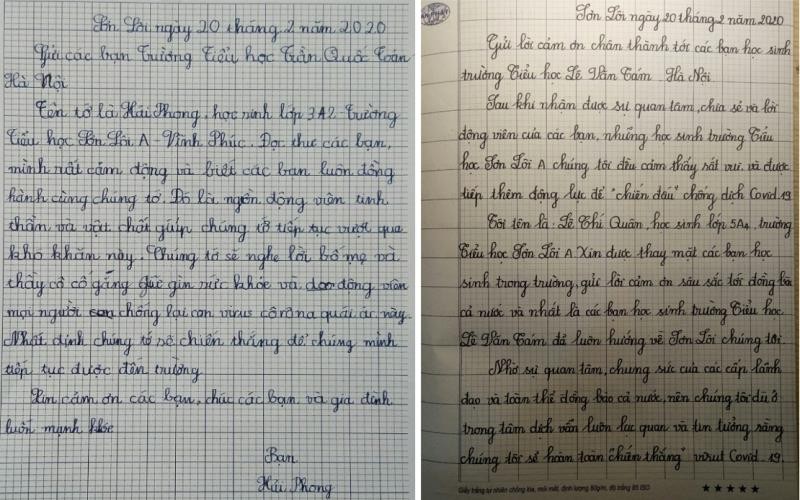 Sơn Lôi ngày 20 tháng 2 năm 2020
Gửi các bạn Trường Tiểu học Trần Quốc Toản
Hà Nội
Tên tớ là Hải Phong, học sinh lớp 3A2 Trường
Tiểu học Sơn Lôi A - Vĩnh Phúc. Đọc thư các bạn,
mình rất cảm động và biết các bạn luôn đồng
hành cùng chúng tớ. Đó là nguồn động viên tinh
thần và vật chất giúp chúng tớ tiếp tục vượt qua
khó khăn này. Chúng tớ sẽ nghe lời bố mẹ và
thầy cô cố gắng giữ gìn sức khỏe và động viên
mọi người chống lại con virus côrôna quái ác này.
Nhất định chúng tớ sẽ chiến thắng để chúng mình
tiếp tục được đến trường.
Xin cảm ơn các bạn, chúc các bạn và gia đình
luôn mạnh khỏe.
Bạn
Hải Phong
Sơn Lôi ngày 20 tháng 2 năm 2020
Gửi lời cảm ơn chân thành tới các bạn học sinh
trường Tiểu học Lê Văn Tám - Hà Nội
Sau khi nhận được sự quan tâm, chia sẻ và lời
động viên của các bạn, những học sinh trường Tiểu
học Sơn Lôi A chúng tôi đều cảm thấy rất vui và được
tiếp thêm động lực để "chiến đấu" chống dịch Covid.19
Tôi tên là: Lê Chí Quân, học sinh lớp 5A4, trường
Tiểu học Sơn Lôi A. Xin được thay mặt các bạn học
sinh trong trường, gửi lời cảm ơn sâu sắc tới đồng bào
cả nước và nhất là các bạn học sinh trường Tiểu học
Lê Văn Tám đã luôn hướng về Sơn Lôi chúng tôi.
Nhờ sự quan tâm, chung sức của các cấp lãnh
đạo và toàn thể đồng bào cả nước, nên chúng tôi dù ở
trong tâm dịch vẫn luôn lạc quan và tin tưởng rằng
chúng tôi sẽ hoàn toàn "chiến thắng" virut Covid.19.
Giấy trắng tự nhiên chống lóa, mỏi mắt, định lượng 80g/m, độ trắng 85 ISO